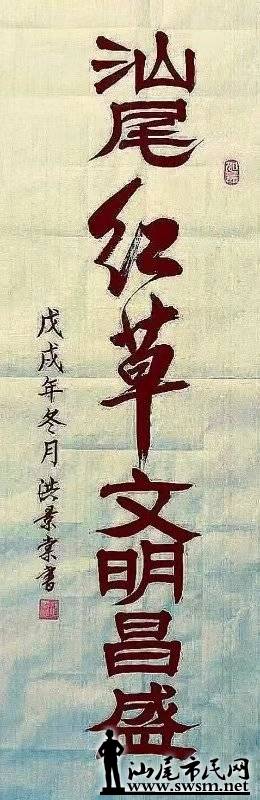 汕尾红草文明昌盛
戊戌年冬月洪景棠書
汕尾市民网
www.swsm.net